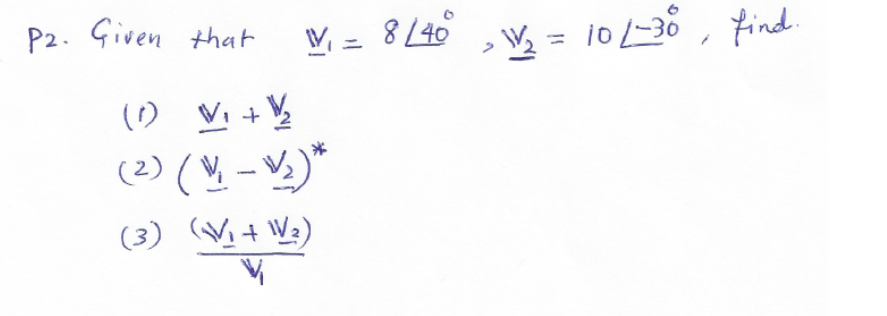 P2. Given that V₁ = 8∠40°, V₂ = 10∠-30°, find.
(1) V₁ + V₂
(2) (V₁ - V₂)*
(3) (V₁ + V₂)
V₁